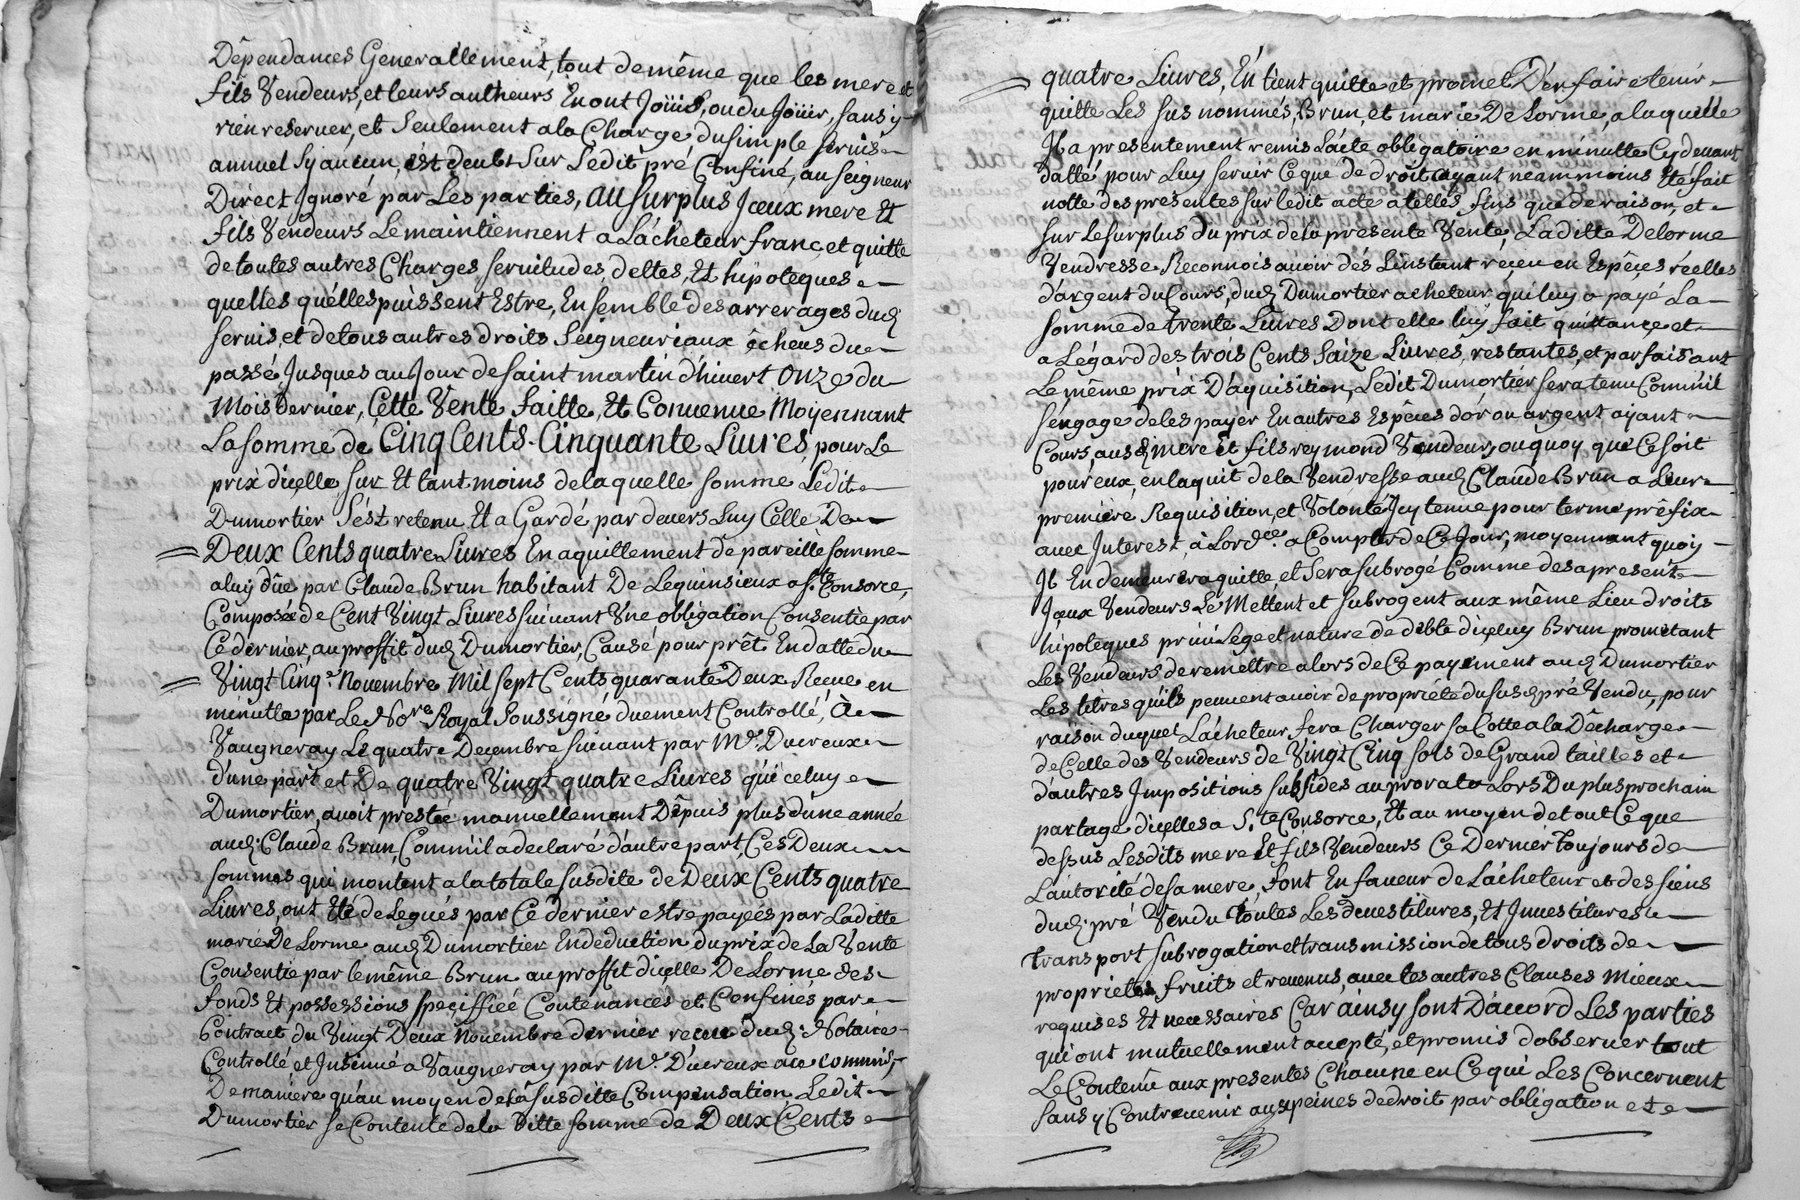 Dépendances Generallement, tout demême que les mere et
fils Vendeurs, et leurs autheurs En ont Joüie, ou du Joüir, sans y
rien reserver, et Seulement a la Charge du Simple servis
annuel Sy aucun, est deubt Sur Ledit pré Confiné, au seigneur
Direct Ignoré par Les parties, au surplus Jceux mere Et
fils Vendeurs Le maintiennent a L'acheteur franc, et quitte
de toutes autres Charges servitudes, dettes, Et hipoteques
quelles qu'elles puissent Estre, Ensemble des arrerages dud
servis et de tous autres droits Seigneuriaux êcheus du
passé Jusques au Jour de Saint martin d'hivert Onze du
Mois dernier, Cette Vente faitte, Et Convenue Moyennant
La somme de Cinq Cents Cinquante Livres, pour Le
prix d'icelle, sur Et tant moins de laquelle somme, Ledit
Dumortier S'est retenu Et a Gardé par devers Luy Celle De
Deux Cents quatre Livres En aquittement de pareille somme
a luy düe par Claude Brun habitant De Lequinsieux a S.te Consorce,
Composée de Cent Vingt Livres suivant Une obligation Consentie par
Ce dernier, au proffit dud Dumortier, Causé pour prêt En datte du
Vingt Cinq.e Novembre Mil sept Cents quarante Deux Receue en
minutte par Le No.re Royal Soussigné duement Controllé, À
Vaugneray Le quatre Decembre suivant par M.e Ducreux
d'une part et De quatre Vingt quatre Livres que celuy
Dumortier, avoit prestée manuellement Depuis plus d'une année
aud. Claude Brun, Comm'il a declaré d'autre part, Ces Deux
sommes qui montent a la totale susdite de Deux Cents quatre
Livres, ont Eté deleguès par Ce dernier estre payées par Laditte
marie De Lorme aud Dumortier En deduction du prix de La Vente
Consentie par le même Brun au proffit d'icelle De Lorme des
fonds Et possessions speciffiée Contenancés et Confinés par
Contract du Vingt Deux Novembre dernier receu dud. Notaire
Controllé et Insinué a Vaugneray par M.e Ducreux aue commis,
De maniere qu'au moyen de la susditte Compensation Ledit
Dumortier se Contente de la ditte somme de Deux Cents
quatre Livres, En tient quitte et promet D'en faire tenir
quitte Les sus nommés, Brun, et marie De Lorme, a laquelle
Jl a presentement remis L'acte obligatoire en minutte Cy devant
datté pour Luy servir Ce que de droit ayant neammoins Eté fait
notte des presentes sur ledit acte a telles fins que de raison, et
sur Le surplus du prix de la presente Vente, Laditte Delorme
Vendresse Reconnois avoir dés L'instant receu en Espéces réelles
d'argent du Cours, dud Dumortier acheteur qui luy a payé La
somme de trente Livres Dont elle luy fait quittance, et
a Légard des trois Cents Saize Livres, restantes, et parfaisant
Le même prix D'aquisition, Ledit Dumortier sera tenu Comm'il
s'engage de les payer En autres Espéces d'or ou argent ayant
Cours, ausd mere Et fils reymond Vendeurs, ou quoy que Ce soit
pour eux, en l'aquit de la Vendresse aud Claude Brun a Leur
premiere Requisition, et Volonté Jcy tenue pour terme prêfix
avec Interest, à L'ord.ce a Compter de Ce Jour, moyennant quoy
Jl En demeurera quitte et Sera subrogé Comme des a present
Jceux Vendeurs Le Mettent et subrogent aux même Lieu droits
hipoteques privilege et nature de debte d'iceluy Brun promettant
Les Vendeurs de remettre a lors de Ce payement aud Dumortier
Les titres qu'ils peuvent avoir de propriété du susd pré Vendu, pour
raison duquel L'acheteur fera Charger sa Cotte a la Décharge
de Celle des Vendeurs de Vingt Cinq sols de Grand tailles et
d'autres Impositions subsides au prorata Lors Du plus prochain
partage d'icelles a S.te Consorce, Et au moyen de tout Ce que
dessus Lesdits mere Et fils Vendeurs Ce Dernier toujours de
L'autorité de sa mere, font En faveur de L'acheteur et des siens
dud. pré Vendu toutes Les devestitures, Et Jnvestitures
transport subrogation et transmission de tous droits de
proprietes fruits et revenus, avec les autres Clauses Mieux
requises Et necessaires Car ainsy sont D'accord Les parties
qui ont mutuellement accepté, et promis d'observer tout
Le Contenu aux presentes Chacune en Ce qui Les Concernent
sans y Contrevenir aux peines de droit par obligation et